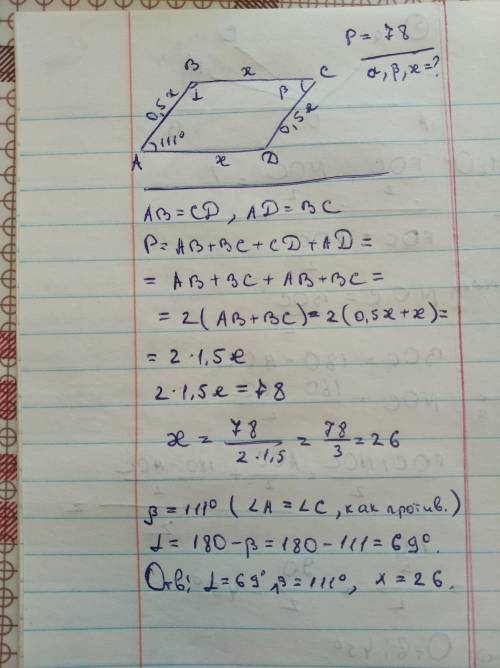 P = 78
α, β, x = ?
B x C
0,5x α β 0,5x
111°
A x D
AB = CD, AD = BC
P = AB + BC + CD + AD =
= AB + BC + AB + BC =
= 2(AB + BC) = 2(0,5x + x) =
= 2 · 1,5x
2 · 1,5x = 78
x = 78 / 2 · 1,5 = 78 / 3 = 26
β = 111° (∠A = ∠C, как против.)
α = 180 - β = 180 - 111 = 69°.
Отв: α = 69°, β = 111°, x = 26.